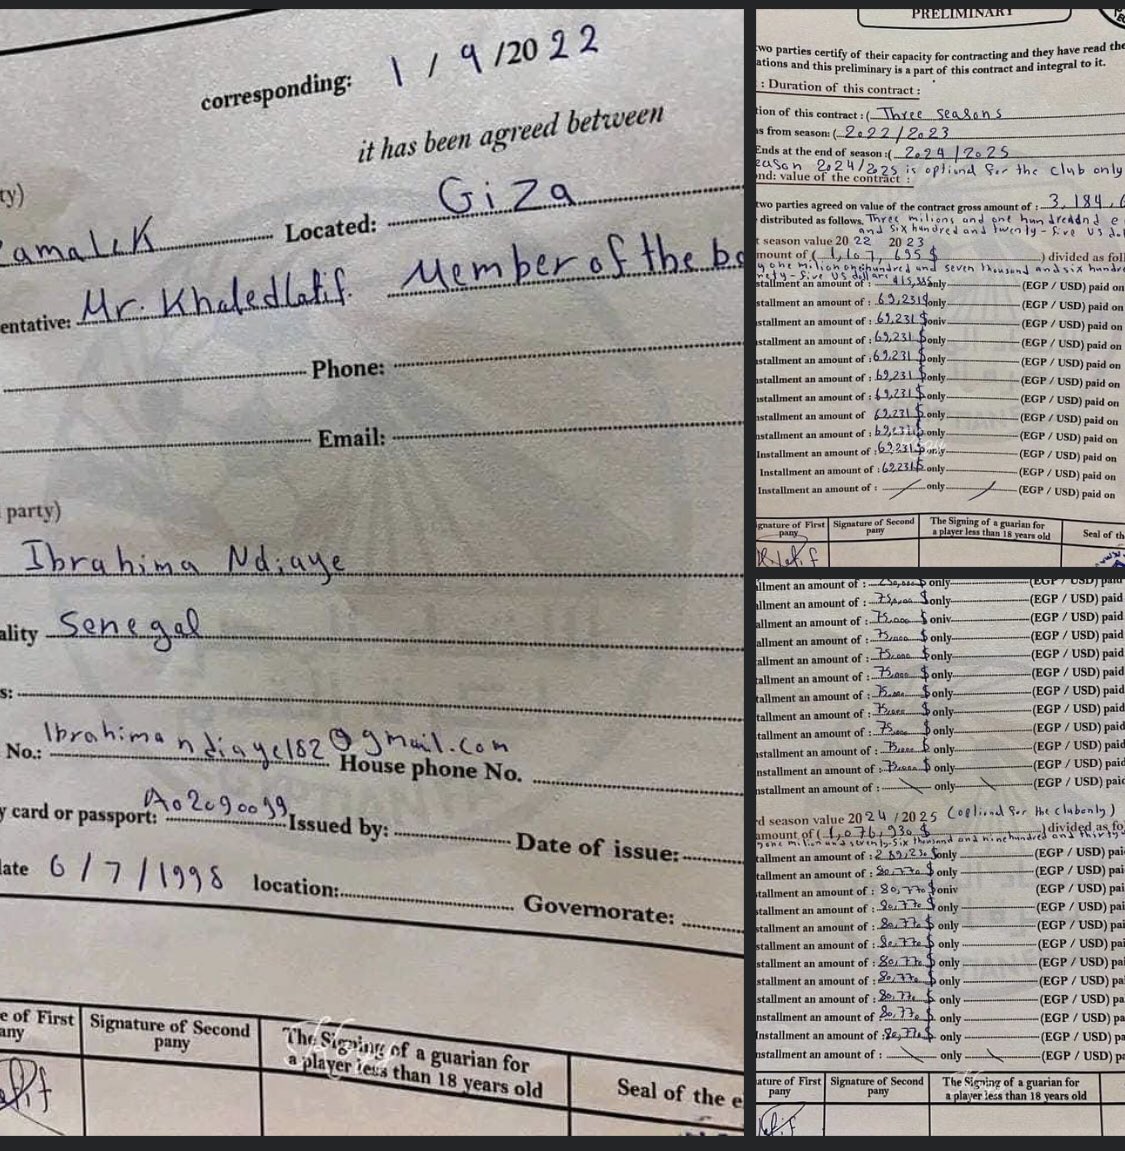 corresponding: 1 / 9 /2022
it has been agreed between
ty)
amalek Located: Giza
entative: Mr. Khaledlatif. Member of the bo
Phone:
Email:
party)
Ibrahima Ndiaye
ality Senegal
s:
No.: Ibrahima ndiaye182@gmail.com House phone No.
y card or passport: A02090099 Issued by: Date of issue:
late 6 / 7 / 1998 location: Governorate:
e of First any Signature of Second pany The Signing of a guarian for a player less than 18 years old Seal of the e
PRELIMINARY
two parties certify of their capacity for contracting and they have read the
ations and this preliminary is a part of this contract and integral to it.
: Duration of this contract :
tion of this contract : ( Three seasons
s from season: ( 2022/2023
Ends at the end of season :( 2024/2025
eason 2024/2025 is optional for the club only
nd: value of the contract :
two parties agreed on value of the contract gross amount of : 3,184,6
distributed as follows. Three milions and one hundreadnd e
and six hundred and twenty-five US dol
t season value 20 22 20 23
mount of ( 1,107,695 $ ) divided as foll
y one milion onehundred and seven thousand and six hundre
nety-five US dollars
stallment an amount of : 415,385 only (EGP / USD) paid on
stallment an amount of : 69,231$ only (EGP / USD) paid on
stallment an amount of : 69,231 $ oniv (EGP / USD) paid on
stallment an amount of : 69,231 $ only (EGP / USD) paid on
stallment an amount of : 69,231 $ only (EGP / USD) paid on
stallment an amount of : 69,231 $ only (EGP / USD) paid on
stallment an amount of : 69,231 $ only (EGP / USD) paid on
stallment an amount of 69,231 $ only (EGP / USD) paid on
nstallment an amount of : 69,231$ only (EGP / USD) paid on
Installment an amount of : 69231$ only (EGP / USD) paid on
Installment an amount of : 69231$ only (EGP / USD) paid on
Installment an amount of : only (EGP / USD) paid on
ignature of First pany Signature of Second pany The Signing of a guarian for a player less than 18 years old Seal of th
allment an amount of : 250,000 $ only (EGP / USD) paid
allment an amount of : 75,000 $ only (EGP / USD) paid
allment an amount of : 75,000 $ oniv (EGP / USD) paid
allment an amount of : 75,000 $ only (EGP / USD) paid
allment an amount of : 75,000 $ only (EGP / USD) paid
allment an amount of : 75,000 $ only (EGP / USD) paid
tallment an amount of : 75,000 $ only (EGP / USD) paid
tallment an amount of : 75,000 $ only (EGP / USD) paid
tallment an amount of : 75,000 $ only (EGP / USD) paid
stallment an amount of : 75,000 $ only (EGP / USD) paid
nstallment an amount of : 75,000 $ only (EGP / USD) paid
nstallment an amount of : only (EGP / USD) paid
rd season value 2024 /2025 (optional for the clubonly)
amount of ( 1,076,930 $ ) divided as fo
y one million and seventy-six thousand and ninehundred and thirty
tallment an amount of : 269,230 $ only (EGP / USD) pai
tallment an amount of : 80,770 $ only (EGP / USD) pai
stallment an amount of : 80,770 $ oniv (EGP / USD) pai
stallment an amount of : 80,770 $ only (EGP / USD) pai
stallment an amount of : 80,770 $ only (EGP / USD) pai
stallment an amount of : 80,770 $ only (EGP / USD) pai
stallment an amount of : 80,770 $ only (EGP / USD) pai
stallment an amount of : 80,770 $ only (EGP / USD) pai
stallment an amount of : 80,770 $ only (EGP / USD) pa
nstallment an amount of : 80,770 $ only (EGP / USD) pa
Installment an amount of : 80,770 $ only (EGP / USD) pa
nstallment an amount of : only (EGP / USD) pa
ature of First pany Signature of Second pany The Signing of a guarian for a player less than 18 years old